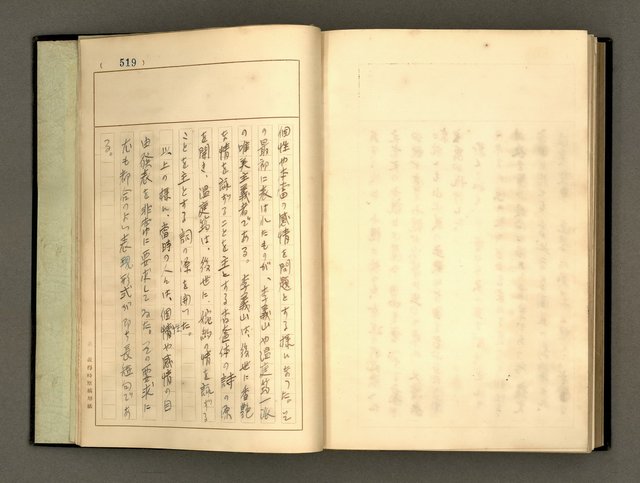 (519)
個性や本當の感情を問題とする様になつた。そ
の最初に表はれたものが、李義山や温庭筠一派
の唯美主義者である。李義山は、後世に香艶
な情を詠がることを主とする香奩体の詩の源
を開き、温庭筠は、後世に婉約の情を詠がる
ことを主とする詞の源を開いた。
以上の様に、當時の人は、個性や感情の自
由發表を非常に要求してゐた。この要求に
尤も都合のよい表現形式が即ち長短句であ
る。